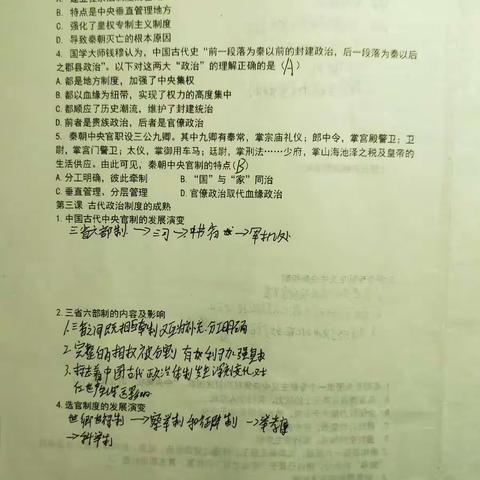 B. 特点是中央垂直管理地方
C. 强化了皇权专制主义制度
D. 导致秦朝灭亡的根本原因
4. 国学大师钱穆认为，中国古代史“前一段落为秦以前的封建政治，后一段落为秦以后
之郡县政治”。以下对这两大“政治”的理解正确的是（A）
A. 都是地方制度，加强了中央集权
B. 都以血缘为纽带，实现了权力的高度集中
C. 都顺应了历史潮流，维护了封建统治
D. 前者是贵族政治，后者是官僚政治
5. 秦朝中央官职设三公九卿。其中九卿有奉常，掌宗庙礼仪；郎中令，掌宫殿警卫；卫
尉，掌宫门警卫；太仪，掌御用车马；廷尉，掌刑法……少府，掌山海池泽之税及皇帝的
生活供应。由此可见，秦朝中央官制的特点（B）
A. 分工明确，彼此牵制 B. “国”与“家”同治
C. 垂直管理、分层管理 D. 官僚政治取代血缘政治
第三课 古代政治制度的成熟
1. 中国古代中央官制的发展演变
三省六部制 → 二府 → 中书省 → 军机处
2. 三省六部制的内容及影响
1. 三省之间既相互牵制又互为补充 分工明确
2. 完整的相权被分割 有利于加强皇权
3. 标志着中国古代政治体制发生深刻变化 对
后世产生深远影响
4. 选官制度的发展演变
世卿世禄制 → 察举制和征辟制 → 举孝廉
→ 科举制